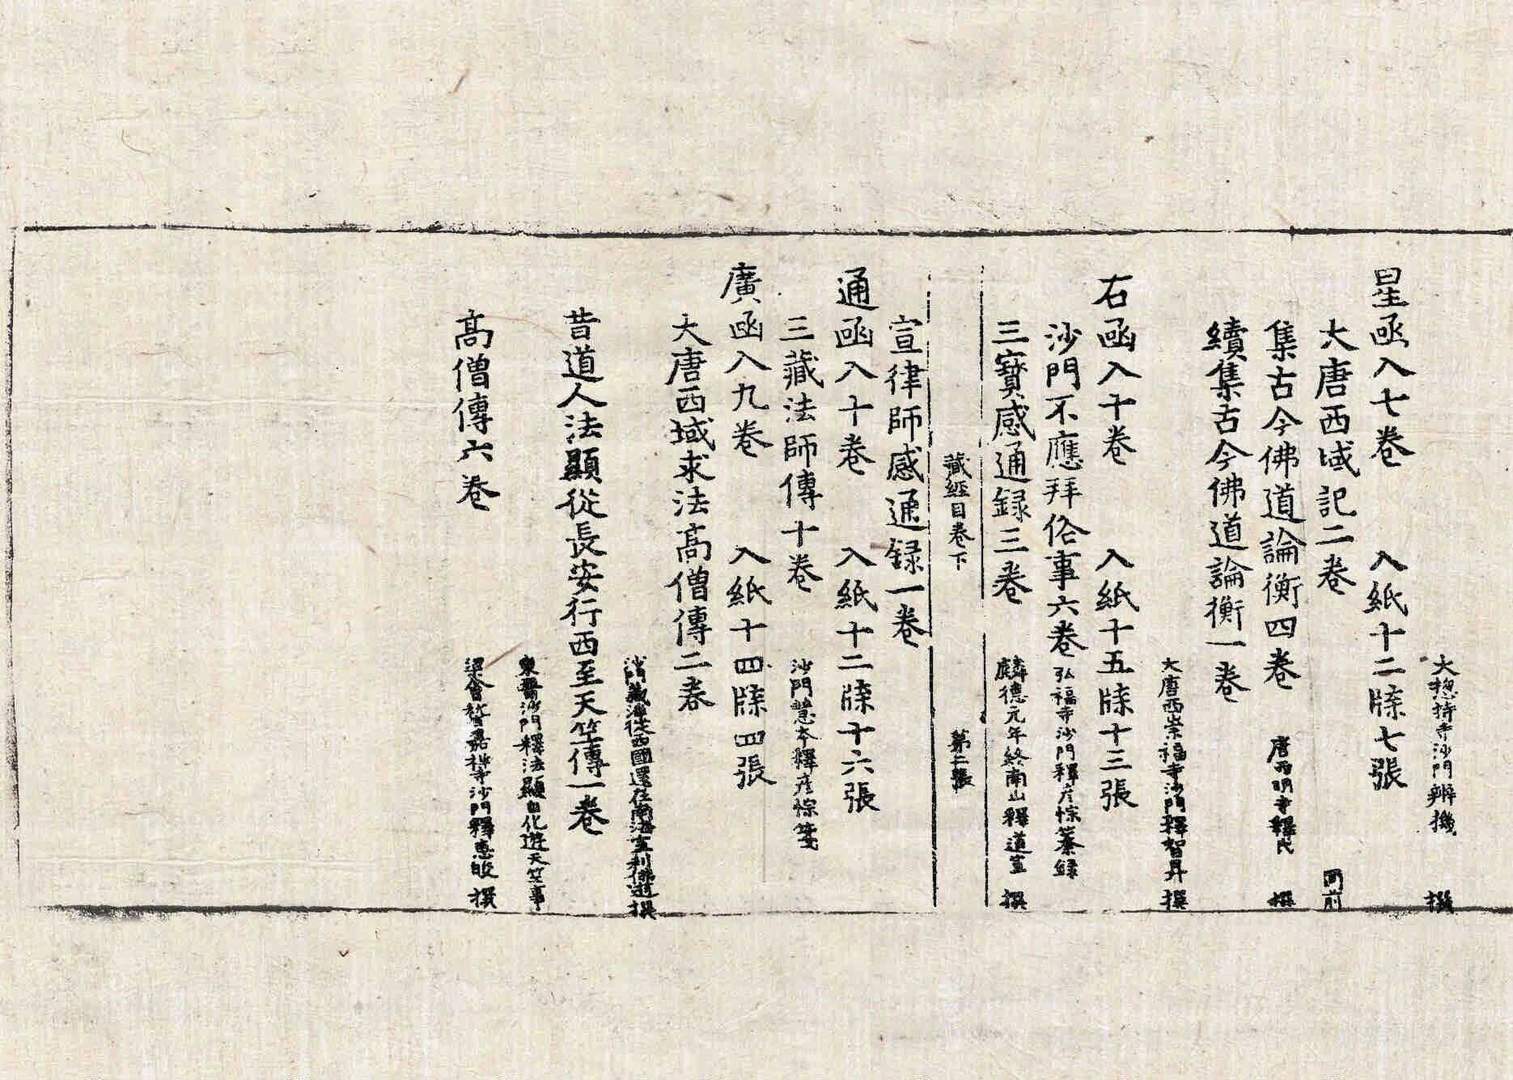 大揔持寺沙門辯機 撰
星函入七卷 入紙十二牒七張
大唐西域記二卷 同前
集古今佛道論衡四卷 唐西明寺釋氏 撰
續集古今佛道論衡一卷
大唐西崇福寺沙門釋智昇 撰
右函入十卷 入紙十五牒十三張
沙門不應拜俗事六卷 弘福寺沙門釋彦悰纂録
三寳感通録三卷 麟德元年終南山釋道宣 撰
藏經目卷下 第二張
宣律師感通録一卷
通函入十卷 入紙十二牒十六張
三藏法師傳十卷 沙門慧本釋彦悰箋
廣函入九卷 入紙十四牒四張
大唐西域求法高僧傳二卷
沙門義淨從西國還在南海室利佛逝撰
昔道人法顯從長安行西至天竺傳一卷
東晉沙門釋法顯自化遊天竺事
高僧傳六卷 梁會稽嘉祥寺沙門釋惠皎 撰